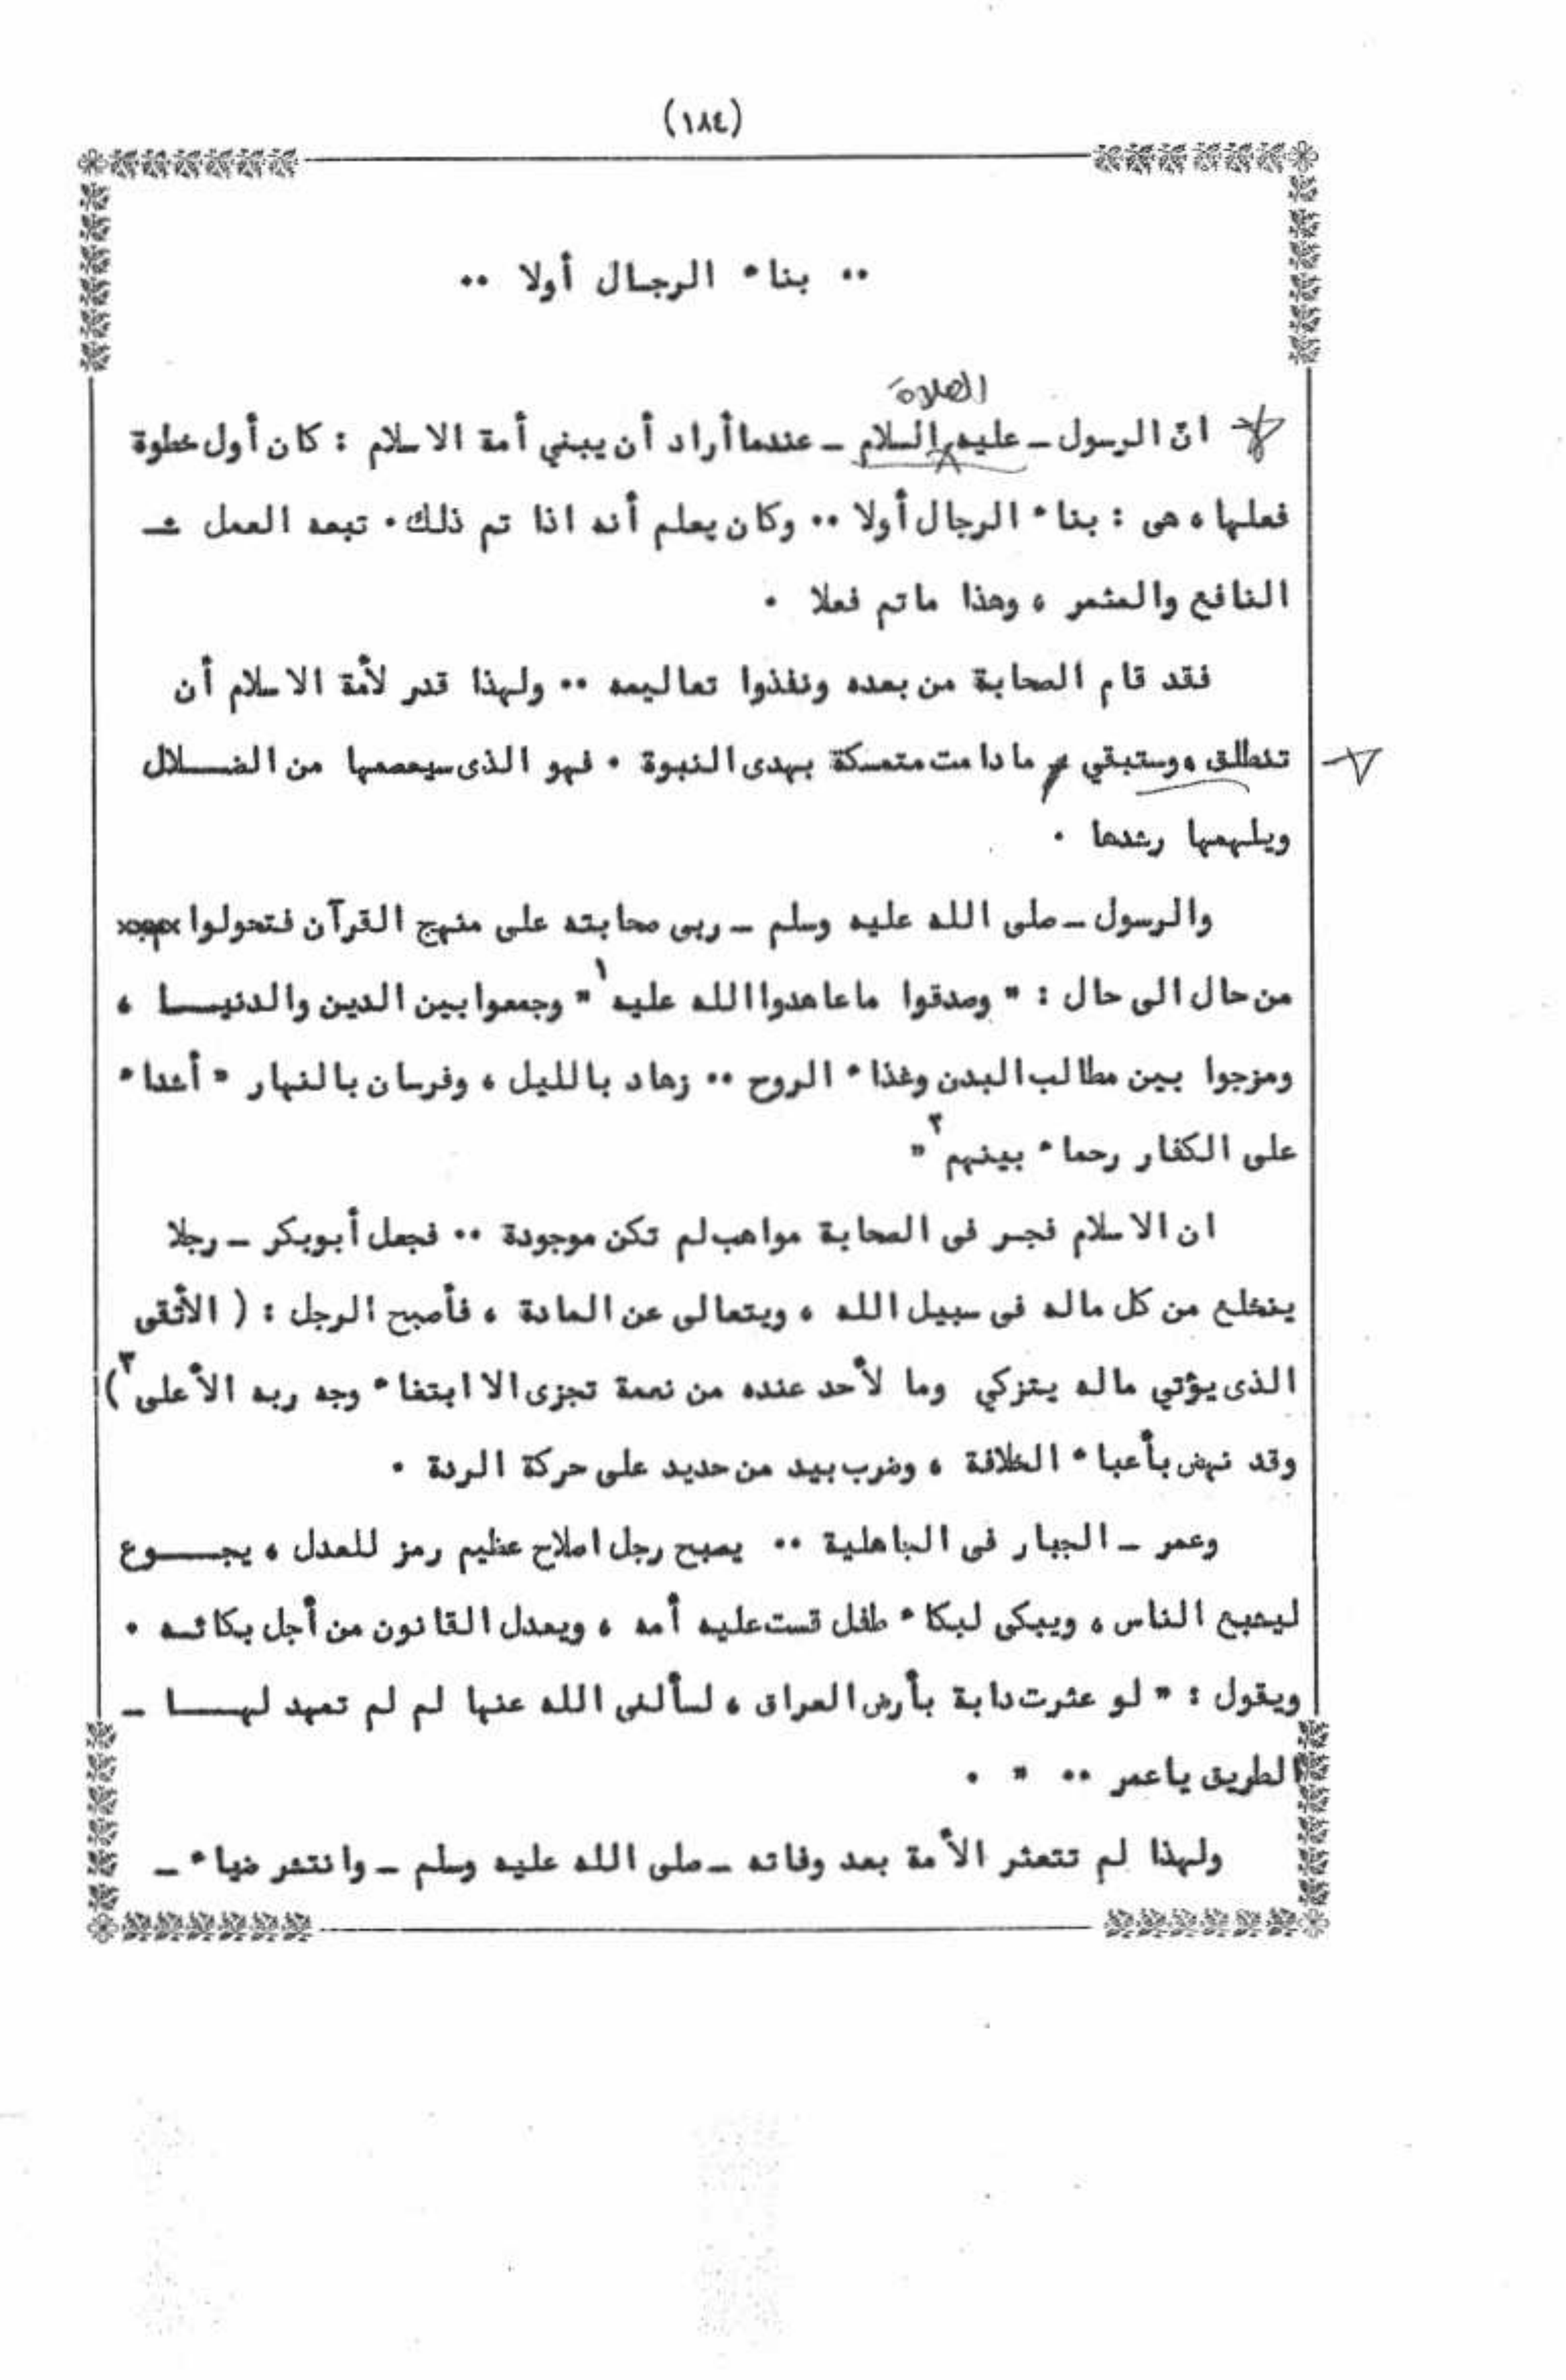 (١٨٤)
٠٠ بناء الرجال أولا ٠٠
الصلاة
انّ الرسول ـ عليه السلام ـ عندما أراد أن يبني أمة الاسلام : كان أول خطوة
فعلها ، هى : بناء الرجال أولا ٠٠ وكان يعلم أنه اذا تم ذلك ٠ تبعه العمل ـ
النافع والمثمر ، وهذا ماتم فعلا ٠
فقد قام الصحابة من بعده ونفذوا تعاليمه ٠٠ ولهذا قدر لأمة الاسلام أن
تنطلق ، وستبقي ما دامت متمسكة بهدى النبوة ٠ فهو الذى سيعصمها من الضـــلال
ويلهمها رشدها ٠
والرسول ـ صلى الله عليه وسلم ـ ربى صحابته على منهج القرآن فتحولوا
من حال الى حال : " وصدقوا ما عاهدوا الله عليه ١ " وجمعوا بين الدين والدنيـــا ،
ومزجوا بين مطالب البدن وغذاء الروح ٠٠ زهاد بالليل ، وفرسان بالنهار " أعداء
على الكفار رحماء بينهم ٢ "
ان الاسلام فجر فى الصحابة مواهب لم تكن موجودة ٠٠ فجعل أبوبكر ـ رجلا
ينخلع من كل ماله فى سبيل الله ، ويتعالى عن المادة ، فأصبح الرجل : ( الأتقى
الذى يؤتي ماله يتزكي وما لأحد عنده من نعمة تجزى الا ابتغاء وجه ربه الأعلى ٣ )
وقد نهض بأعباء الخلافة ، وضرب بيد من حديد على حركة الردة ٠
وعمر ـ الجبار فى الجاهلية ٠٠ يصبح رجل اصلاح عظيم رمز للعدل ، يجـــوع
ليشبع الناس ، ويبكى لبكاء طفل قست عليه أمه ، ويعدل القانون من أجل بكائـه ٠
ويقول : " لو عثرت دابة بأرض العراق ، لسألنى الله عنها لم لم تمهد لهـــا ـ
الطريق ياعمر ٠٠ " ٠
ولهذا لم تتعثر الأمة بعد وفاته ـ صلى الله عليه وسلم ـ وانتشر ضياء ـ